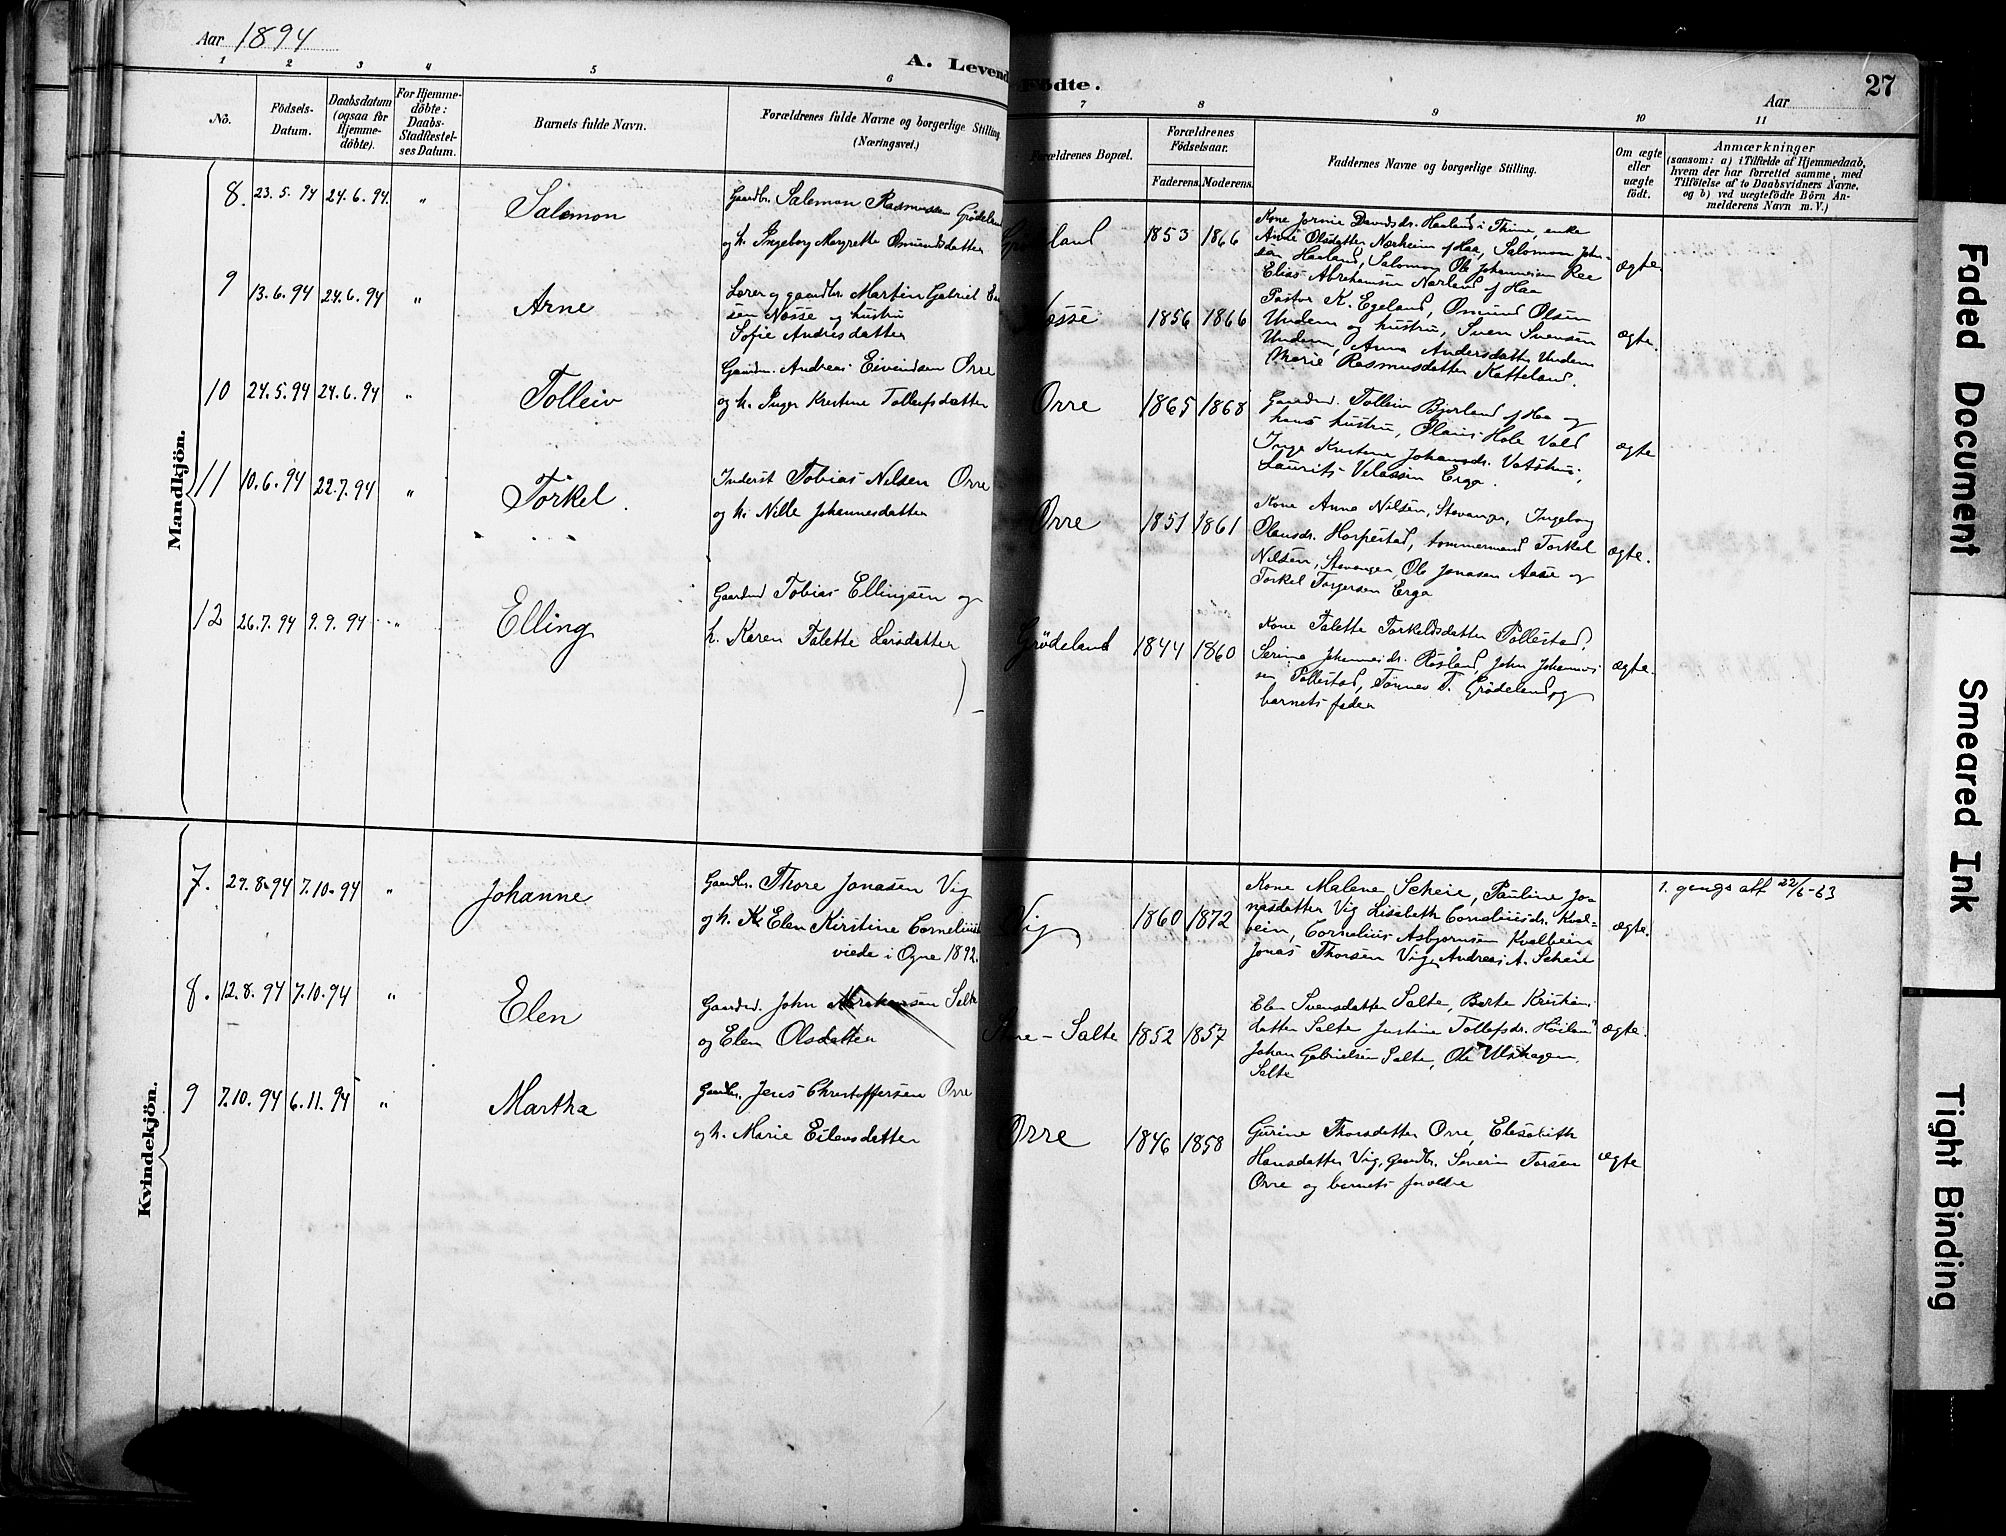 Aar 1894
A. Levend
Födte.
27
Aar
1 2 3 4 5 6 7 8 9 10 11
Nô.
Födsels-
Datum.
Daabsdatum
(ogsaa for
Hjemme-
döbte).
For Hjemme-
döbte:
Daabs-
Stadfæstel-
ses Datum.
Barnets fulde Navn.
Forældrenes fulde Navne og borgerlige Stilling
(Næringsvei.)
Forældrenes Bopæl.
Forældrenes
Födselsaar.
Faderens. Moderens.
Faddernes Navne og borgerlige Stilling.
Om ægte
eller
uægte
födt.
Anmærkninger
(saasom: a) i Tilfælde af Hjemmedaab,
hvem der har forrettet samme, med
Tilföielse af to Daabsvidners Navne,
og b) ved uægtefödte Börn An-
melderens Navn m. V.)
Mandkjön.
8. 23.5.94 24.6.94. " Salomon
Gaardbr. Salomon Rasmussen Grödeland
og h. Ingeborg Margrethe Osmundsdatter
1853 1866
Kone Jörnie Davidsdr. Haaland i Thime, enke
Anne Olsdatter Nærheim af Haa, Salomon John-
sen Haaland, Salomon Ole Johannesen Ree
Elias Abrahamsen Nærland af Haa
ægte
9 13.6.94 24.6.94 " Arne
Lærer og gaardbr. Martin Gabriel
sen Nosse og hustru
Sofie Andersdatter
1856 1866
Pastor K. Egeland, Osmund Olsen
Undem og hustru, Sven Svensen
Undem, Anna Andersdatter Undem
Marie Rasmusdatter Katteland.
ægte.
10 24.5.94 24.6.94 " Tolleiv
Gaardm. Andreas Eivindsen Orre
og h. Inger Kristine Tollefsdatter
Orre 1865 1868
Gaardm. Tolleiv Bjorland af Haa og
hans hustru, Olaus Hole Vold
Inge Kristine Johansdr. Vatshus,
Laurits Velassen Erga.
ægte
11 10.6.94 22.7.94 " Törkel.
Inderst Tobias Nilsen Orre
og h. Nille Johannesdatter
Orre 1851 1861
Kone Anna Nilsen, Stavanger, Ingeborg
Olensdr. Horpestad, tømmermand Torkel
Nilsen, Stavanger, Ole Jonasen Aase og
Torkel Torgersen Erga
ægte.
12 26.7.94 9.9.94 " Elling
Gaardmd Tobias Ellingsen og
h. Karen Talette Larsdatter
Grödeland 1844 1860
Kone Talette Torkeldsdatter Pollestad,
Serina Johannesdr. Rosland, John Johannes-
sen Pollestad, Tönnes T. Grödeland og
barnets fader
ægte.
Kvindekjön.
7. 27.8.94 7.10.94 " Johanne
Gaardbr. Thore Jonasen Vig
og h. Elen Kirstine Cornelius
viede i Ogne 1892.
Vig 1860 1872
Kone Malene Scheie, Pauline Jo-
nasdatter Vig Lisabeth Corneliusdr. Kval-
bein, Cornelius Asbjornsen Kvalbein
Jonas Thorsen Vig, Andreas A. Scheie
ægte.
1. gangs att 22/6-63
8. 12.8.94 7.10.94 " Elen
Gaardmd. John Salte
og Elen Olsdatter
Store-Salte 1852 1857
Elen Svensdatter Salte, Berte Kristian
datter Salte Justine Tollefsdr. Höiland
Johan Gabrielsen Salte, Ole Ulshagen
Salte
ægte.
9 7.10.94 6.11.94 " Martha
Gaardbr. Jens Christoffersen Orre
og h. Marie Eilevsdatter
Orre 1846 1858
Gurine Thorsdatter Orre, Elisabeth
Hansdatter Vig, gaardbr. Severin Torsen
Orre og barnets foreldre
ægte
Faded Document
Smeared Ink
Tight Binding